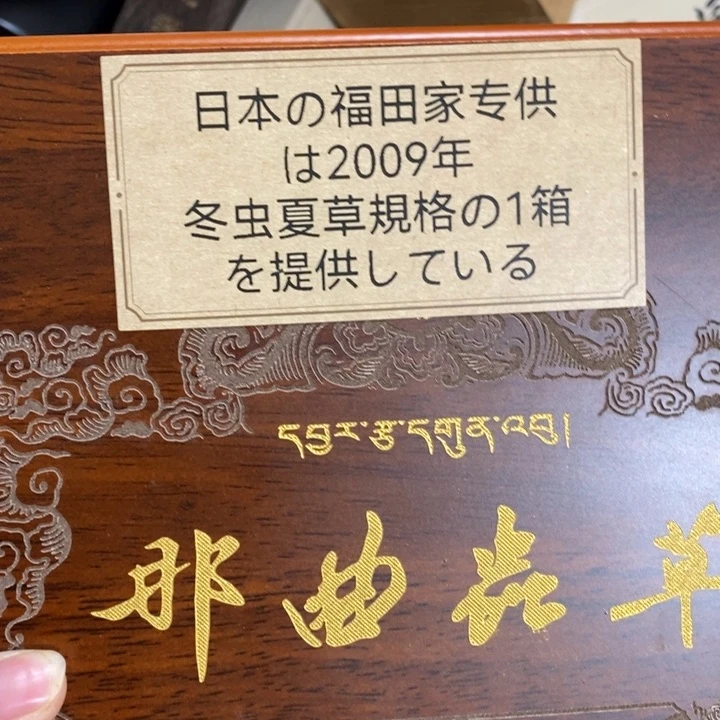 日本の福田家专供
は2009年
冬虫夏草規格の1箱
を提供している
དབྱར་རྩྭ་དགུན་འབུ།
那曲虫草